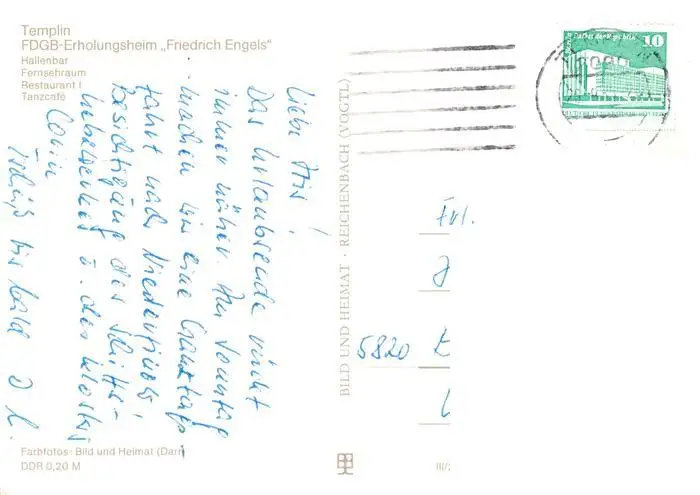 Templin
FDGB-Erholungsheim „Friedrich Engels"
Hallenbar
Fernsehraum
Restaurant I
Tanzcafé
Liebe
Das Urlaubsende rückt
immer näher. Am Sonntag
machen wir eine Ganztags-
fahrt nach Niederfinow.
Besichtigung des Schiffs-
hebewerkes u. des Klosters
Corin
Tschüß bis bald
BILD UND HEIMAT · REICHENBACH (VOGTL)
10
Frl.
5820
Farbfotos: Bild und Heimat (Darr)
DDR 0,20 M
III/